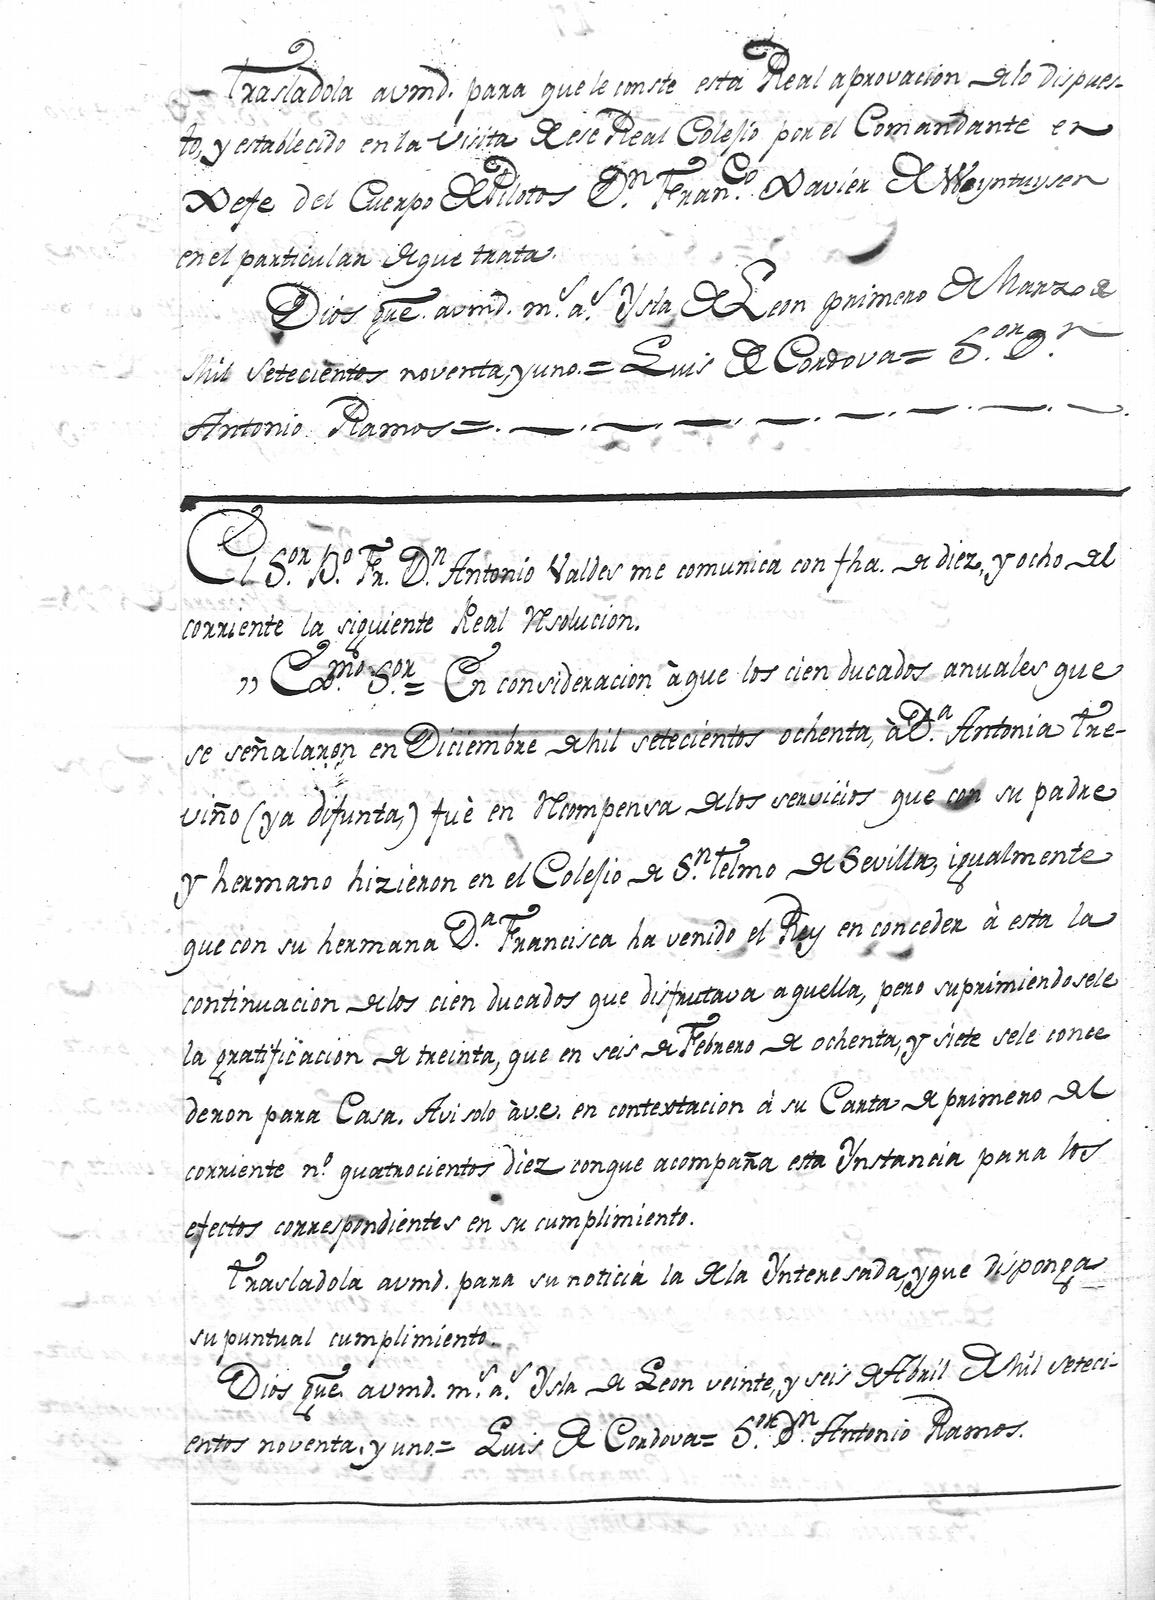 Trasladola avmd. para que le conste esta Real aprovacion de lo dispues-
to, y establecido en la Visita de ese Real Colejio por el Comandante en
Xefe del Cuerpo de Pilotos Dn. Franco. Xavier de Wyntuysen
en el particular de que trata.
Dios gue. avmd. ms. as. Ysla de Leon primero de Marzo de
Mil Setecientos noventa, y uno.= Luis de Cordova= Sor. Dn.
Antonio Ramos=.
El Sor. Bo. Fr. Dn. Antonio Valdes me comunica con fha. de diez, y ocho del
corriente la siguiente Real Resolucion.
,, Exmo. Sor.= En consideracion à que los cien ducados anuales que
se señalaron en Diciembre de Mil setecientos ochenta, à Da. Antonia Tre-
viño (ya difunta,) fuè en Recompensa de los servicios que con su padre
y hermano hizieron en el Colejio de Sn. Telmo de Sevilla, igualmente
que con su hermana Da. Francisca ha venido el Rey en conceder à esta la
continuacion de los cien ducados que disfrutava aquella, pero suprimiendosele
la gratificacion de treinta, que en seis de Febrero de ochenta, y siete sele conce
deron para Casa. Avisolo àv.e. en contextacion à su Carta de primero del
corriente no. quatrocientos diez conque acompaña esta Ynstancia para los
efectos correspondientes en su cumplimiento.
Trasladola avmd. para su noticia la de la Ynteresada, y que disponga
su puntual cumplimiento.
Dios gue. avmd. ms. as. Ysla de Leon veinte, y seis de Abril de Mil seteci-
entos noventa, y uno.= Luis de Cordova= Sor. Dn. Antonio Ramos.